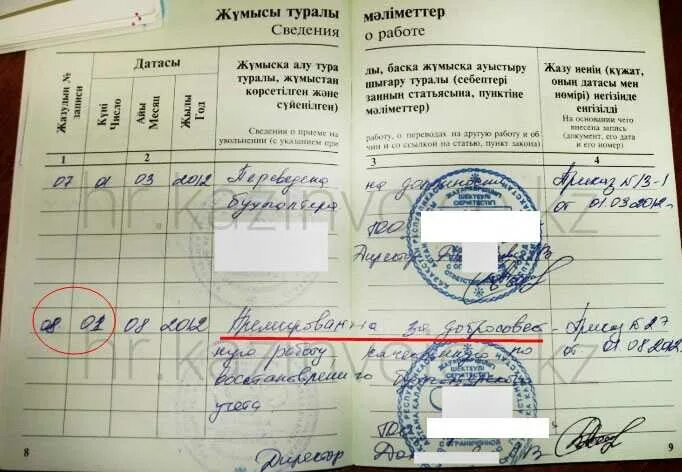 Жұмысы туралы мәліметтер
Сведения о работе
Жазудың №
записи
Датасы
Күні
Число
Айы
Месяц
Жылы
Год
Жұмысқа алу тура
туралы, жұмыстан
көрсетілген және
сүйенілген)
Сведения о приеме на
увольнении (с указанием при
лы, басқа жұмысқа ауыстыру
шығару туралы (себептері
заңның статьясына, пунктіне
мәліметтер)
работу, о переводах на другую работу и об
чин и со ссылкой на статью, пункт закона)
Жазу ненің (құжат,
оның датасы мен
нөмірі) негізінде
енгізілді
На основании чего
внесена запись
(документ, его дата
и его номер)
1 2 3 4
07 01 03 2012 Переведена на должность Приказ №13-1
бухгалтера от 01.03.2012г.
ТОО
Директор
08 01 08 2012 Премирована за добросовест- Приказ №27
ную работу от 01.08.2012
восстановлению бухгалтерского
учета
ТОО
Директор
8 9
hr.kazinvo